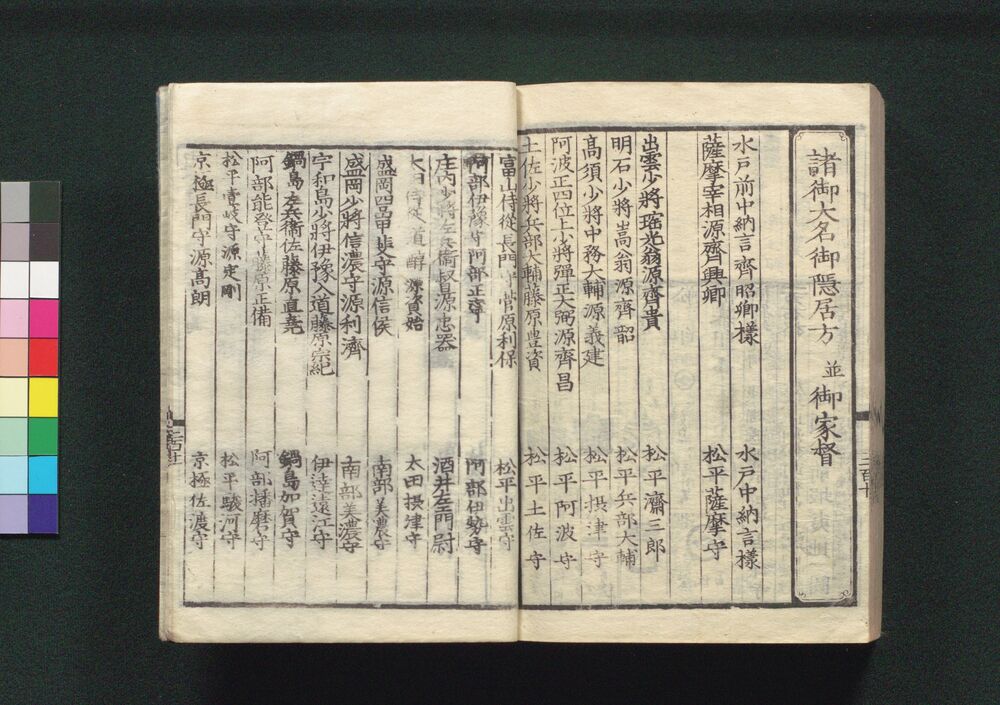 諸御大名御隠居方 並 御家督
水戸前中納言齊昭卿様 水戸中納言様
薩摩宰相源齊興卿 松平薩摩守
出雲少将瑤光翁源齊貴 松平濟三郎
明石少将嵩翁源齊韶 松平兵部大輔
高須少将中務大輔源義建 松平摂津守
阿波正四位上少将弾正大弼源齊昌 松平阿波守
土佐少将兵部大輔藤原豊資 松平土佐守
富山侍従長門守菅原利保 松平出雲守
阿部伊豫守阿部正寧 阿部伊勢守
庄内少将左兵衛督源忠器 酒井左衛門尉
太田侍従道醇源資始 太田摂津守
盛岡四品甲斐守源信侯 南部美濃守
盛岡少将信濃守源利濟 南部美濃守
宇和島少将伊豫入道藤原宗紀 伊達遠江守
鍋島左兵衛佐藤原直堯 鍋島加賀守
阿部能登守藤原正備 阿部播磨守
松平壹岐守源定剛 松平駿河守
京極長門守源高朗 京極佐渡守
三百十